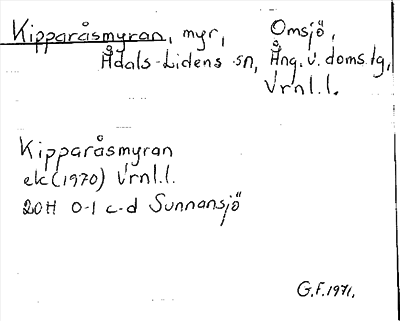 Kipparåsmyran, myr, Omsjö,
Ådals-Lidens sn, Ång. v. doms.tg,
Vrnl.l.
Kipparåsmyran
ek (1970) Vrnl.l.
20H 0-1 c-d Sunnansjö
G.F. 1971.